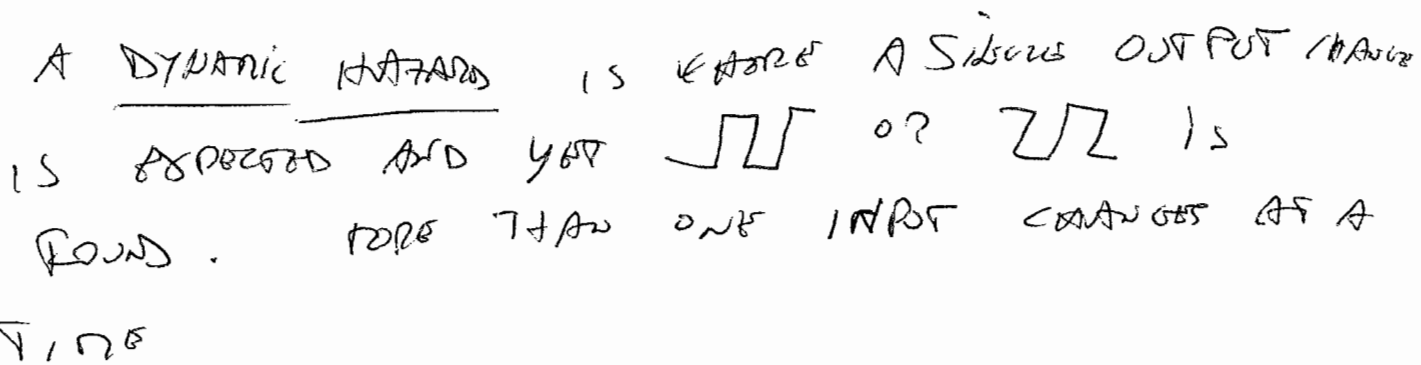 A DYNAMIC HAZARD IS WHERE A SINGLE OUTPUT CHANGE
IS EXPECTED AND YET OR IS
FOUND. MORE THAN ONE INPUT CHANGES AT A
TIME